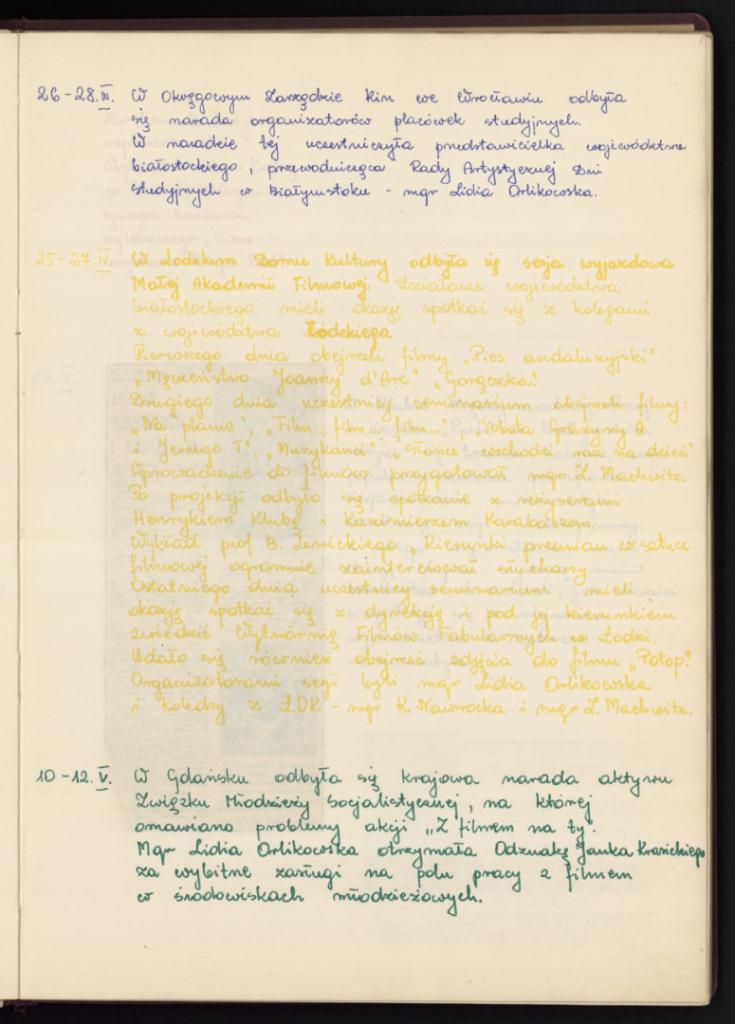 26-28.III. W Okręgowym Zarządzie Kin we Wrocławiu odbyła
się narada organizatorów placówek studyjnych.
W naradzie tej uczestniczyła przedstawicielka województwa
białostockiego, przewodnicząca Rady Artystycznej Dni
Studyjnych w Białymstoku - mgr Lidia Orlikowska.
25-27.IV. W Łódzkim Domu Kultury odbyła się sesja wyjazdowa
Małej Akademii Filmowej. Działacze województwa
białostockiego mieli okazję spotkać się z kolegami
z województwa Łódzkiego.
Pierwszego dnia obejrzeli filmy „Pies andaluzyjski"
„Męczeństwo Joanny d'Arc" „Gorączka".
Drugiego dnia uczestnicy seminarium obejrzeli filmy:
„Na planie", „Film... film... film...", „Sobota Grażyny A.
i Jerzego T", „Muzykanci" „Słońce wschodzi raz na dzień"
Wprowadzenie do filmów przygotował mgr Z. Machwitz.
Po projekcji odbyło się spotkanie z reżyserami
Henrykiem Klubą i Kazimierzem Karabaszem.
Wykład prof. B. Lewickiego „Kierunki przemian w sztuce
filmowej ogromnie zainteresował słuchaczy.
Ostatniego dnia uczestnicy seminarium mieli
okazję spotkać się z dyrekcją i pod jej kierunkiem
zwiedzić Wytwórnię Filmów Fabularnych w Łodzi.
Udało się również obejrzeć zdjęcia do filmu „Potop".
Organizatorami sesji byli mgr Lidia Orlikowska
i koledzy z ŁDK - mgr K. Nawrocka i mgr Z. Machwitz.
10-12.V. W Gdańsku odbyła się krajowa narada aktywu
Związku Młodzieży Socjalistycznej, na której
omawiano problemy akcji „Z filmem na ty".
Mgr Lidia Orlikowska otrzymała Odznakę Janka Krasickiego
za wybitne zasługi na polu pracy z filmem
w środowiskach młodzieżowych.